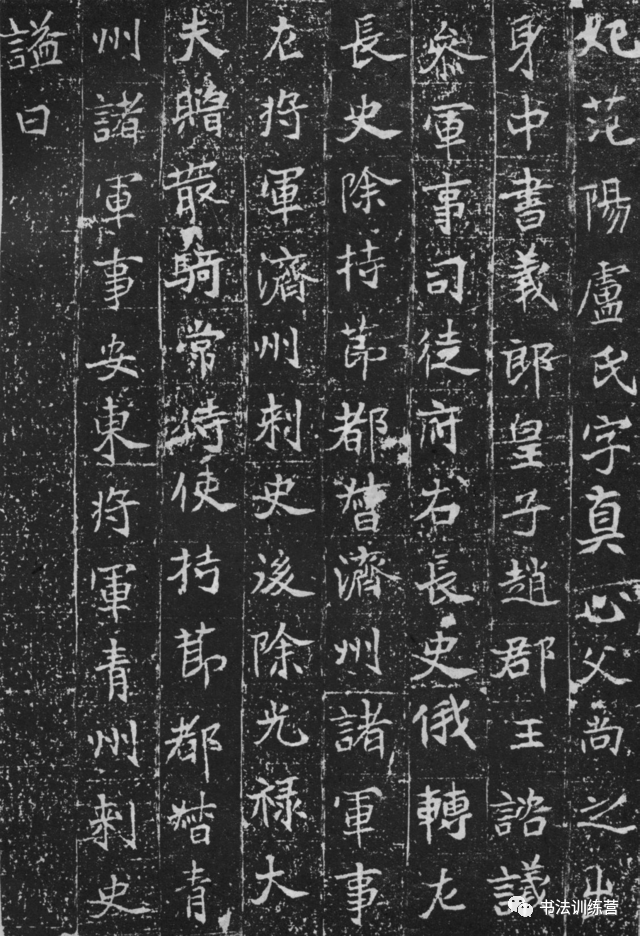 妃范陽盧氏字真心父尚之出
身中書義郎皇子趙郡王諮議
叅軍事司徒府右長史俄轉左
長史除持節都督濟州諸軍事
左將軍濟州刺史後除光禄大
夫贈散騎常侍使持節都督青
州諸軍事安東將軍青州刺史
謚曰
书法训练营